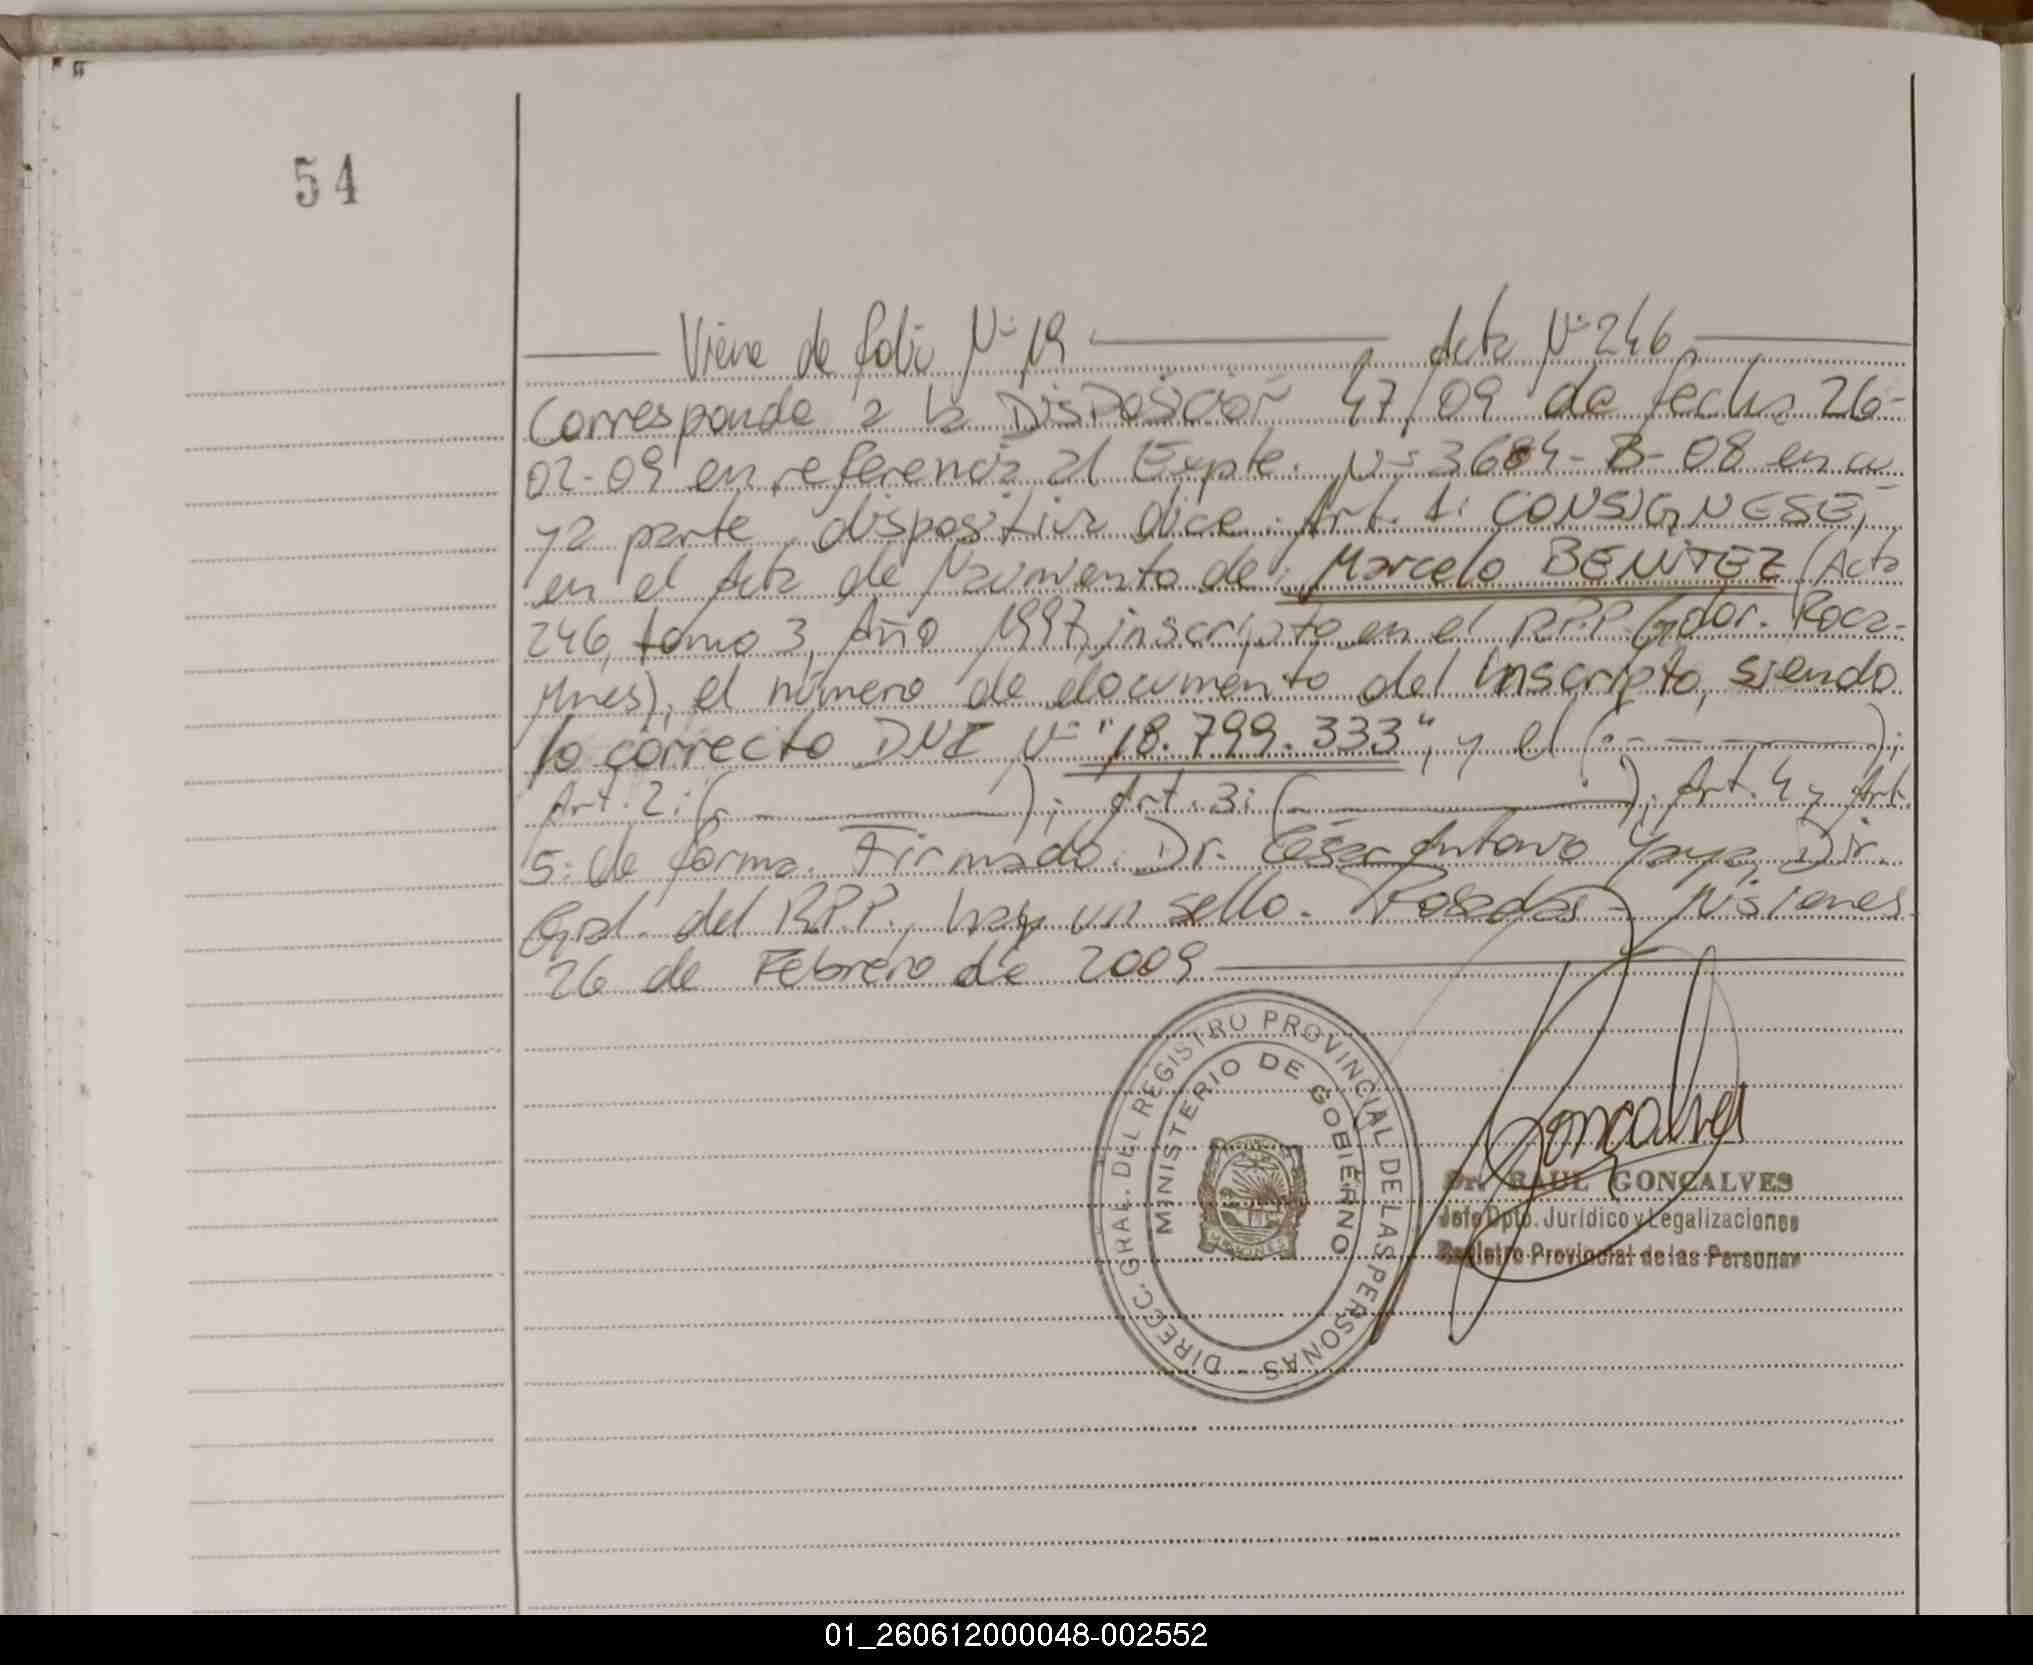 54
Viene de folio Nº 19 Acta Nº 246
Corresponde a la Disposición 47/09 de fecha 26-
02-09 en referencia al Expte. Nº 3684-B-08 en cu-
ya parte dispositiva dice: Art. 1: CONSIGNESE,
en el Acta de Nacimiento de: Marcelo BENITEZ (Acta
246, tomo 3, Año 1997, inscripto en el R.P.P. Gdor. Roca-
Mnes), el número de documento del inscripto, siendo
lo correcto DNI Nº "18.799.333", y el (---);
Art. 2: (---); Art. 3: (---); Art. 4 y Art.
5: de forma. Firmado: Dr. César Antonio Yaya, Dir.
Gral. del R.P.P., hay un sello. Posadas - Misiones
26 de Febrero de 2009
DIRECC. GRAL. DEL REGISTRO PROVINCIAL DE LAS PERSONAS
MINISTERIO DE GOBIERNO
MISIONES
Gonçalves
Dr. RAUL GONÇALVES
Jefe Dpto. Jurídico y Legalizaciones
Registro Provincial de las Personas
01_260612000048-002552